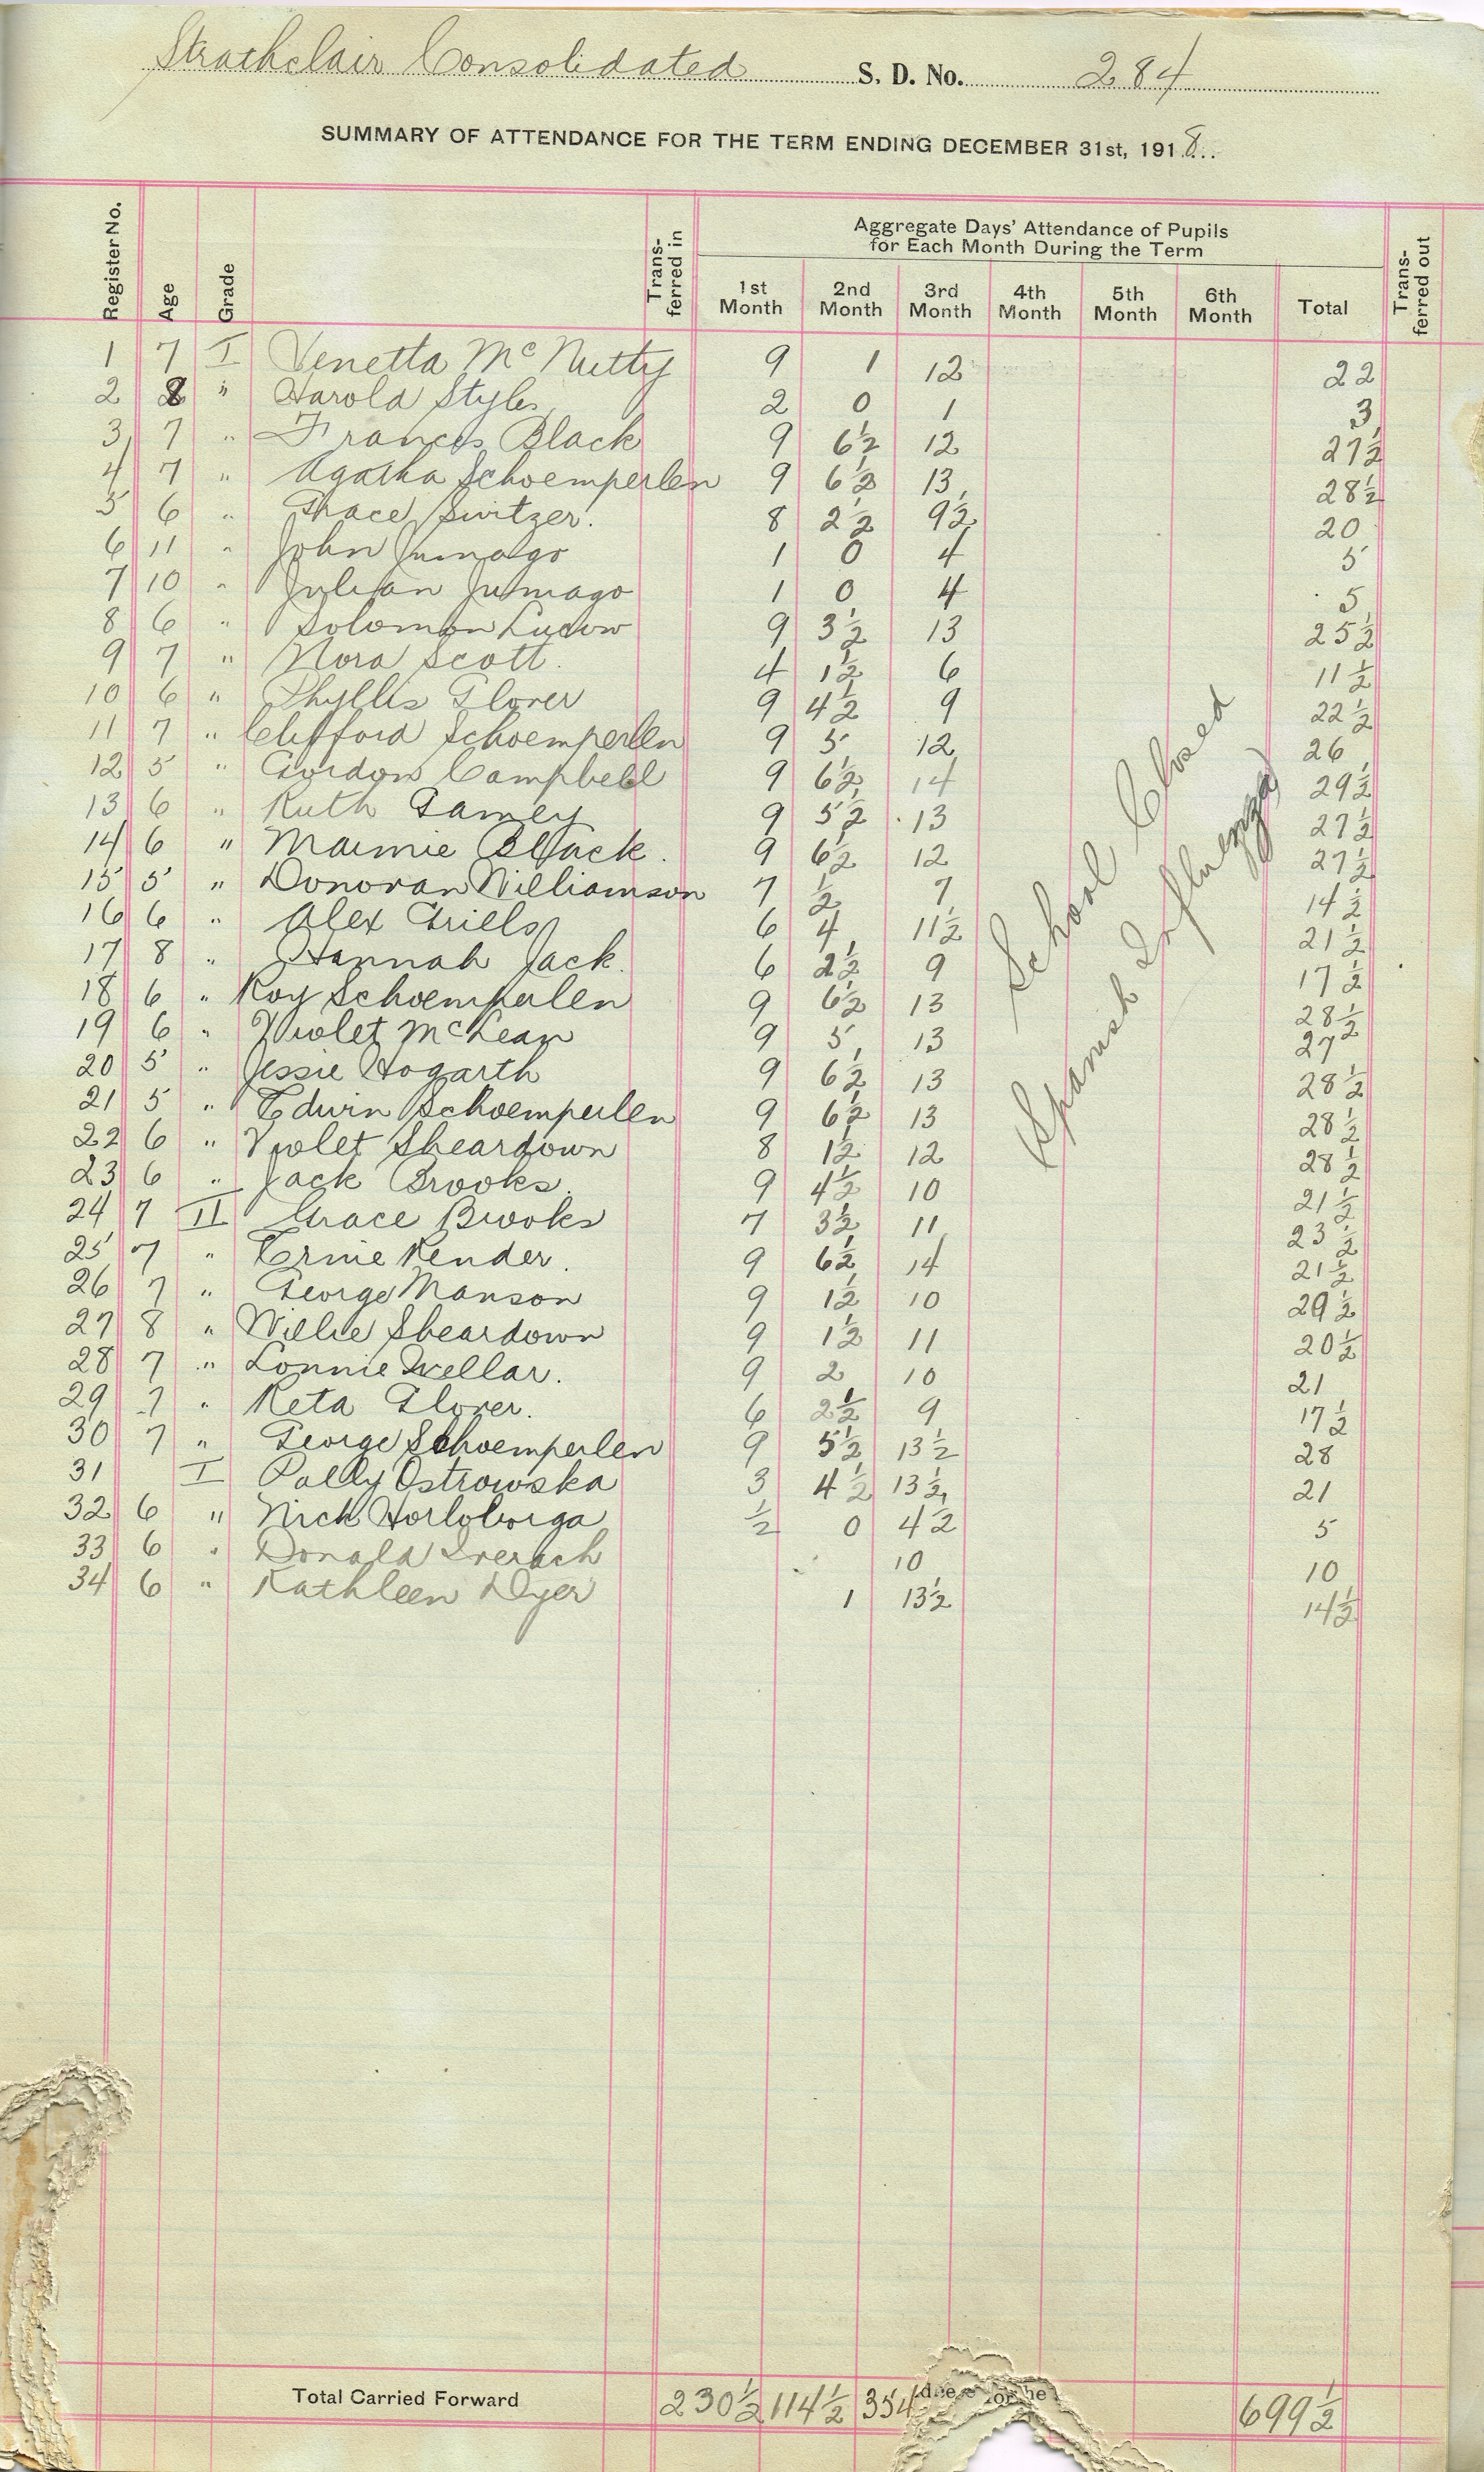 Strathclair Consolidated S. D. No. 284
SUMMARY OF ATTENDANCE FOR THE TERM ENDING DECEMBER 31st, 1918
Register No. Age Grade Trans-ferred in Aggregate Days' Attendance of Pupils for Each Month During the Term Trans-ferred out
1st Month 2nd Month 3rd Month 4th Month 5th Month 6th Month Total
1 7 I Venetta McNutty 9 1 12 22
2 8 " Harold Styles 2 0 1 3
3 7 " Frances Black 9 6½ 12 27½
4 7 " Agatha Schoemperlen 9 6½ 13 28½
5 6 " Grace Switzer. 8 2½ 9½ 20
6 11 " John 1 0 4 5
7 10 " Julian 1 0 4 5
8 6 " Solomon 9 3½ 13 25½
9 7 " Nora Scott. 4 1½ 6 11½
10 6 " Phyllis Glover 9 4½ 9 22½
11 7 " Clifford Schoemperlen 9 5 12 26
12 5 " Gordon Campbell 9 6½ 14 29½
13 6 " Ruth Gamey 9 5½ 13 27½
14 6 " Maimie Black. 9 6½ 12 27½
15 5 " Donovan Williamson 7 ½ 7 14½
16 6 " Alex Grills 6 4 11½ 21½
17 8 " Hannah Jack. 6 2½ 9 17½
18 6 " Roy Schoemperlen 9 6½ 13 28½
19 6 " Violet McLean 9 5 13 27
20 5 " Jessie Hogarth 9 6½ 13 28½
21 5 " Edwin Schoemperlen 9 6½ 13 28½
22 6 " Violet Sheardown 8 1½ 12 28½
23 6 " Jack Brooks. 9 4½ 10 21½
24 7 II Grace Brooks 7 3½ 11 23½
25 7 " Ernie Kender. 9 6½ 14 21½
26 7 " George Manson 9 1½ 10 29½
27 8 " Willie Sheardown 9 1½ 11 20½
28 7 " Lonnie Wellar. 9 2 10 21
29 7 " Reta Glover. 6 2½ 9 17½
30 7 " George Schoemperlen 9 5½ 13½ 28
31 I Polly Ostrowska 3 4½ 13½ 21
32 6 " Nick ½ 0 4½ 5
33 6 " Donald Iverach 10 10
34 6 " Kathleen Dyer 1 13½ 14½
School Closed
(Spanish Influenza)
Total Carried Forward 230½ 114½ 354 699½